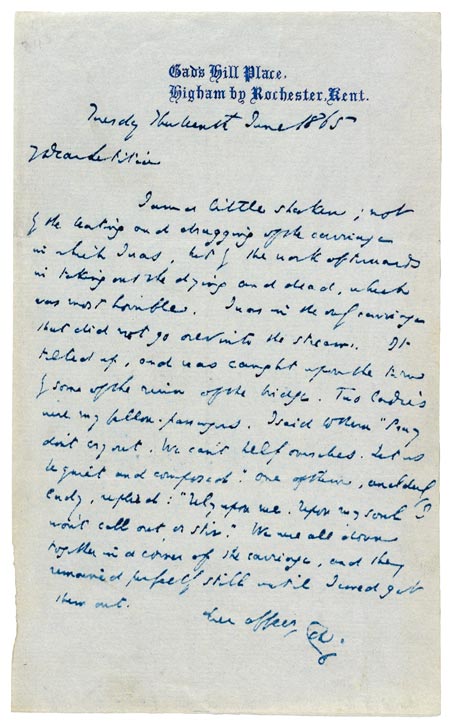 Gad's Hill Place,
Higham by Rochester, Kent.
Tuesday Thirteenth June 1865
My Dear Letitia
I am a little shaken; not
by the beating and dragging of the carriage
in which I was, but by the work afterwards
in taking out the dying and dead, which
was most horrible. I was in the only carriage
that did not go over into the stream. It
tilted up, and was caught upon the turn
by some of the ruin of the bridge. Two ladies
were my fellow-passengers. I said to them "Pray
don't cry out. We can't help ourselves. Let us
be quiet and composed." One of them, an old
lady, replied: "Rely upon me. Upon my soul I
won't call out, or stir." We were all down
together in a corner of the carriage, and they
remained perfectly still until I could get
them out.
Ever affecy CD.